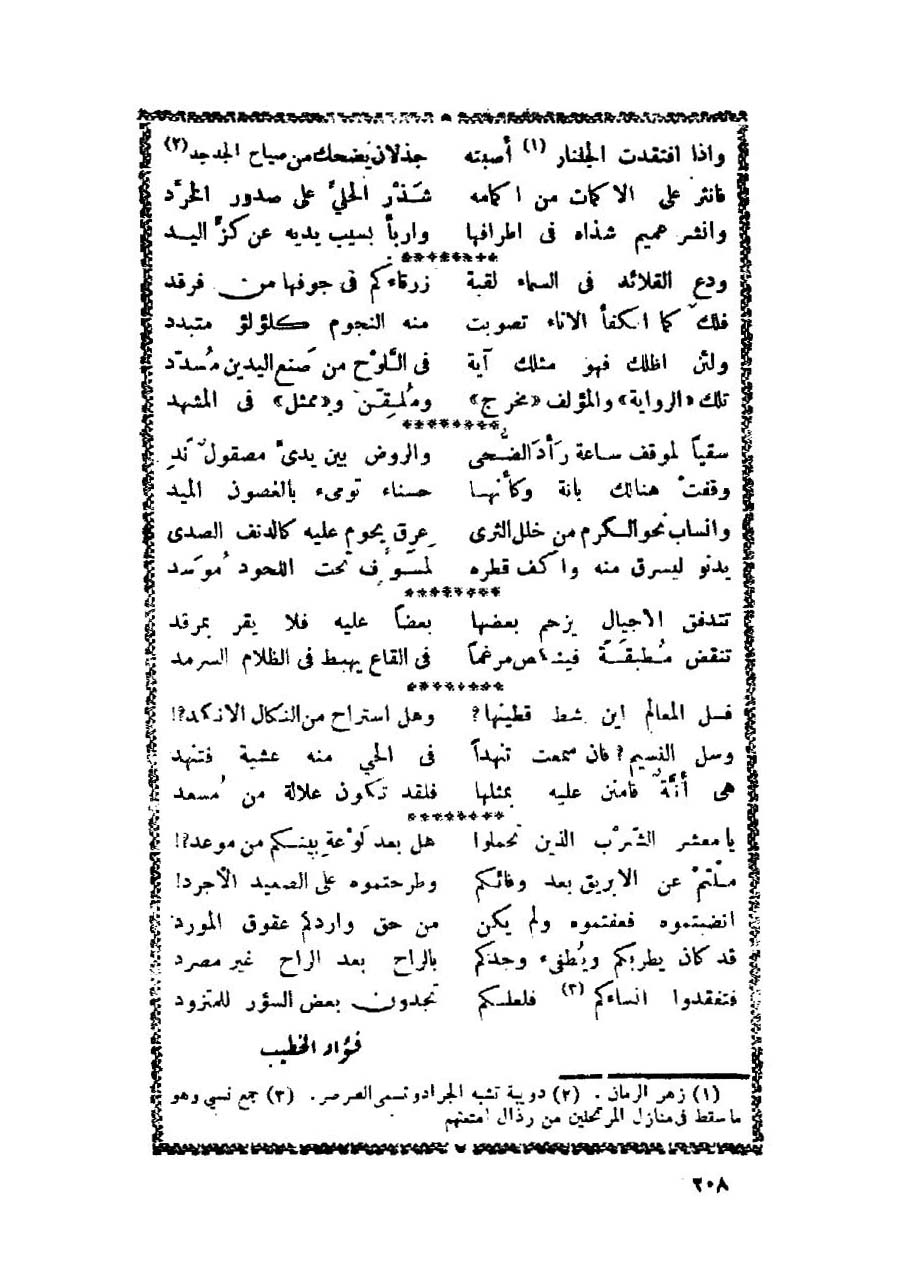 واذا افتقدت الجلنار (١) أصبته جذلان يضحك من صياح الجدجد (٢)
فانثر على الاكمات من اكمامه شَذْر الحليّ على صدور الخرَّد
وانشر عميم شذاه فى اطرافها واربأ بسيب يديه عن كزّ اليد
********
ودع القلائد فى السماء لقبة زرقاء كم فى جوفها من فرقد
فلك كما انكفأ الاناء تصوبت منه النجوم كلؤلؤ متبدد
ولئن اظلك فهو مثلك آية فى اللَّوْح من صَنع اليدين مُسدّد
تلك «الرواية» والمؤلف «مخرج» ومُلَمِقَن و«ممثل» فى المشهد
********
سقياً لموقف ساعة رَأدَ الضُّحى والروض بين يدىّ مصقول نَدِ
وقفتْ هنالك بانة وكأنها حسناء تومىء بالغصون الميد
وانساب نحو الكرم من خلل الثرى عرق يحوم عليه كالدنف الصدى
يدنو ليسرق منه واكف قطره لمسَوِّف تحت اللحود مُوسد
********
تتدفق الاجيال يزحم بعضها بعضاً عليه فلا يقر بمرقد
تنقض مُطبقَةً مرغماً فى القاع يهبط فى الظلام السرمد
********
فسل المعالم اين شط قطينها؟ وهل استراح من النكال الانكد؟!
وسل النسيم؟ فان سمعت تنهداً فى الحي منه عشية فتنهد
هى أنَّة فامنن عليه بمثلها فلقد تكون علالة من مُسعد
********
يا معشر الشَرْب الذين تحملوا هل بعد لَوْعةِ بينكم من موعد؟!
مِلْتمْ عن الابريق بعد وفائكم وطرحتموه على الصعيد الأجرد!
انضبتموه فعفتموه ولم يكن من حق واردكم عقوق المورد
قد كان يطربكم ويُطفىء وجدكم بالراح بعد الراح غير مصرد
فتفقدوا انساءكم (٣) فلعلكم تجدون بعض السؤر للمتزود
فؤاد الخطيب
(١) زهر الرمان. (٢) دويبة تشبه الجراد وتسمى الصرصر. (٣) جمع نسي وهو
ما سقط فى منازل المرتحلين من رذال امتعتهم
٢٠٨